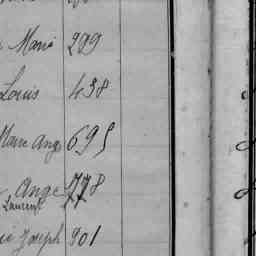 Marie 299
Louis 438
Marc Ange 695
Ange 778
Laurent
Joseph 901